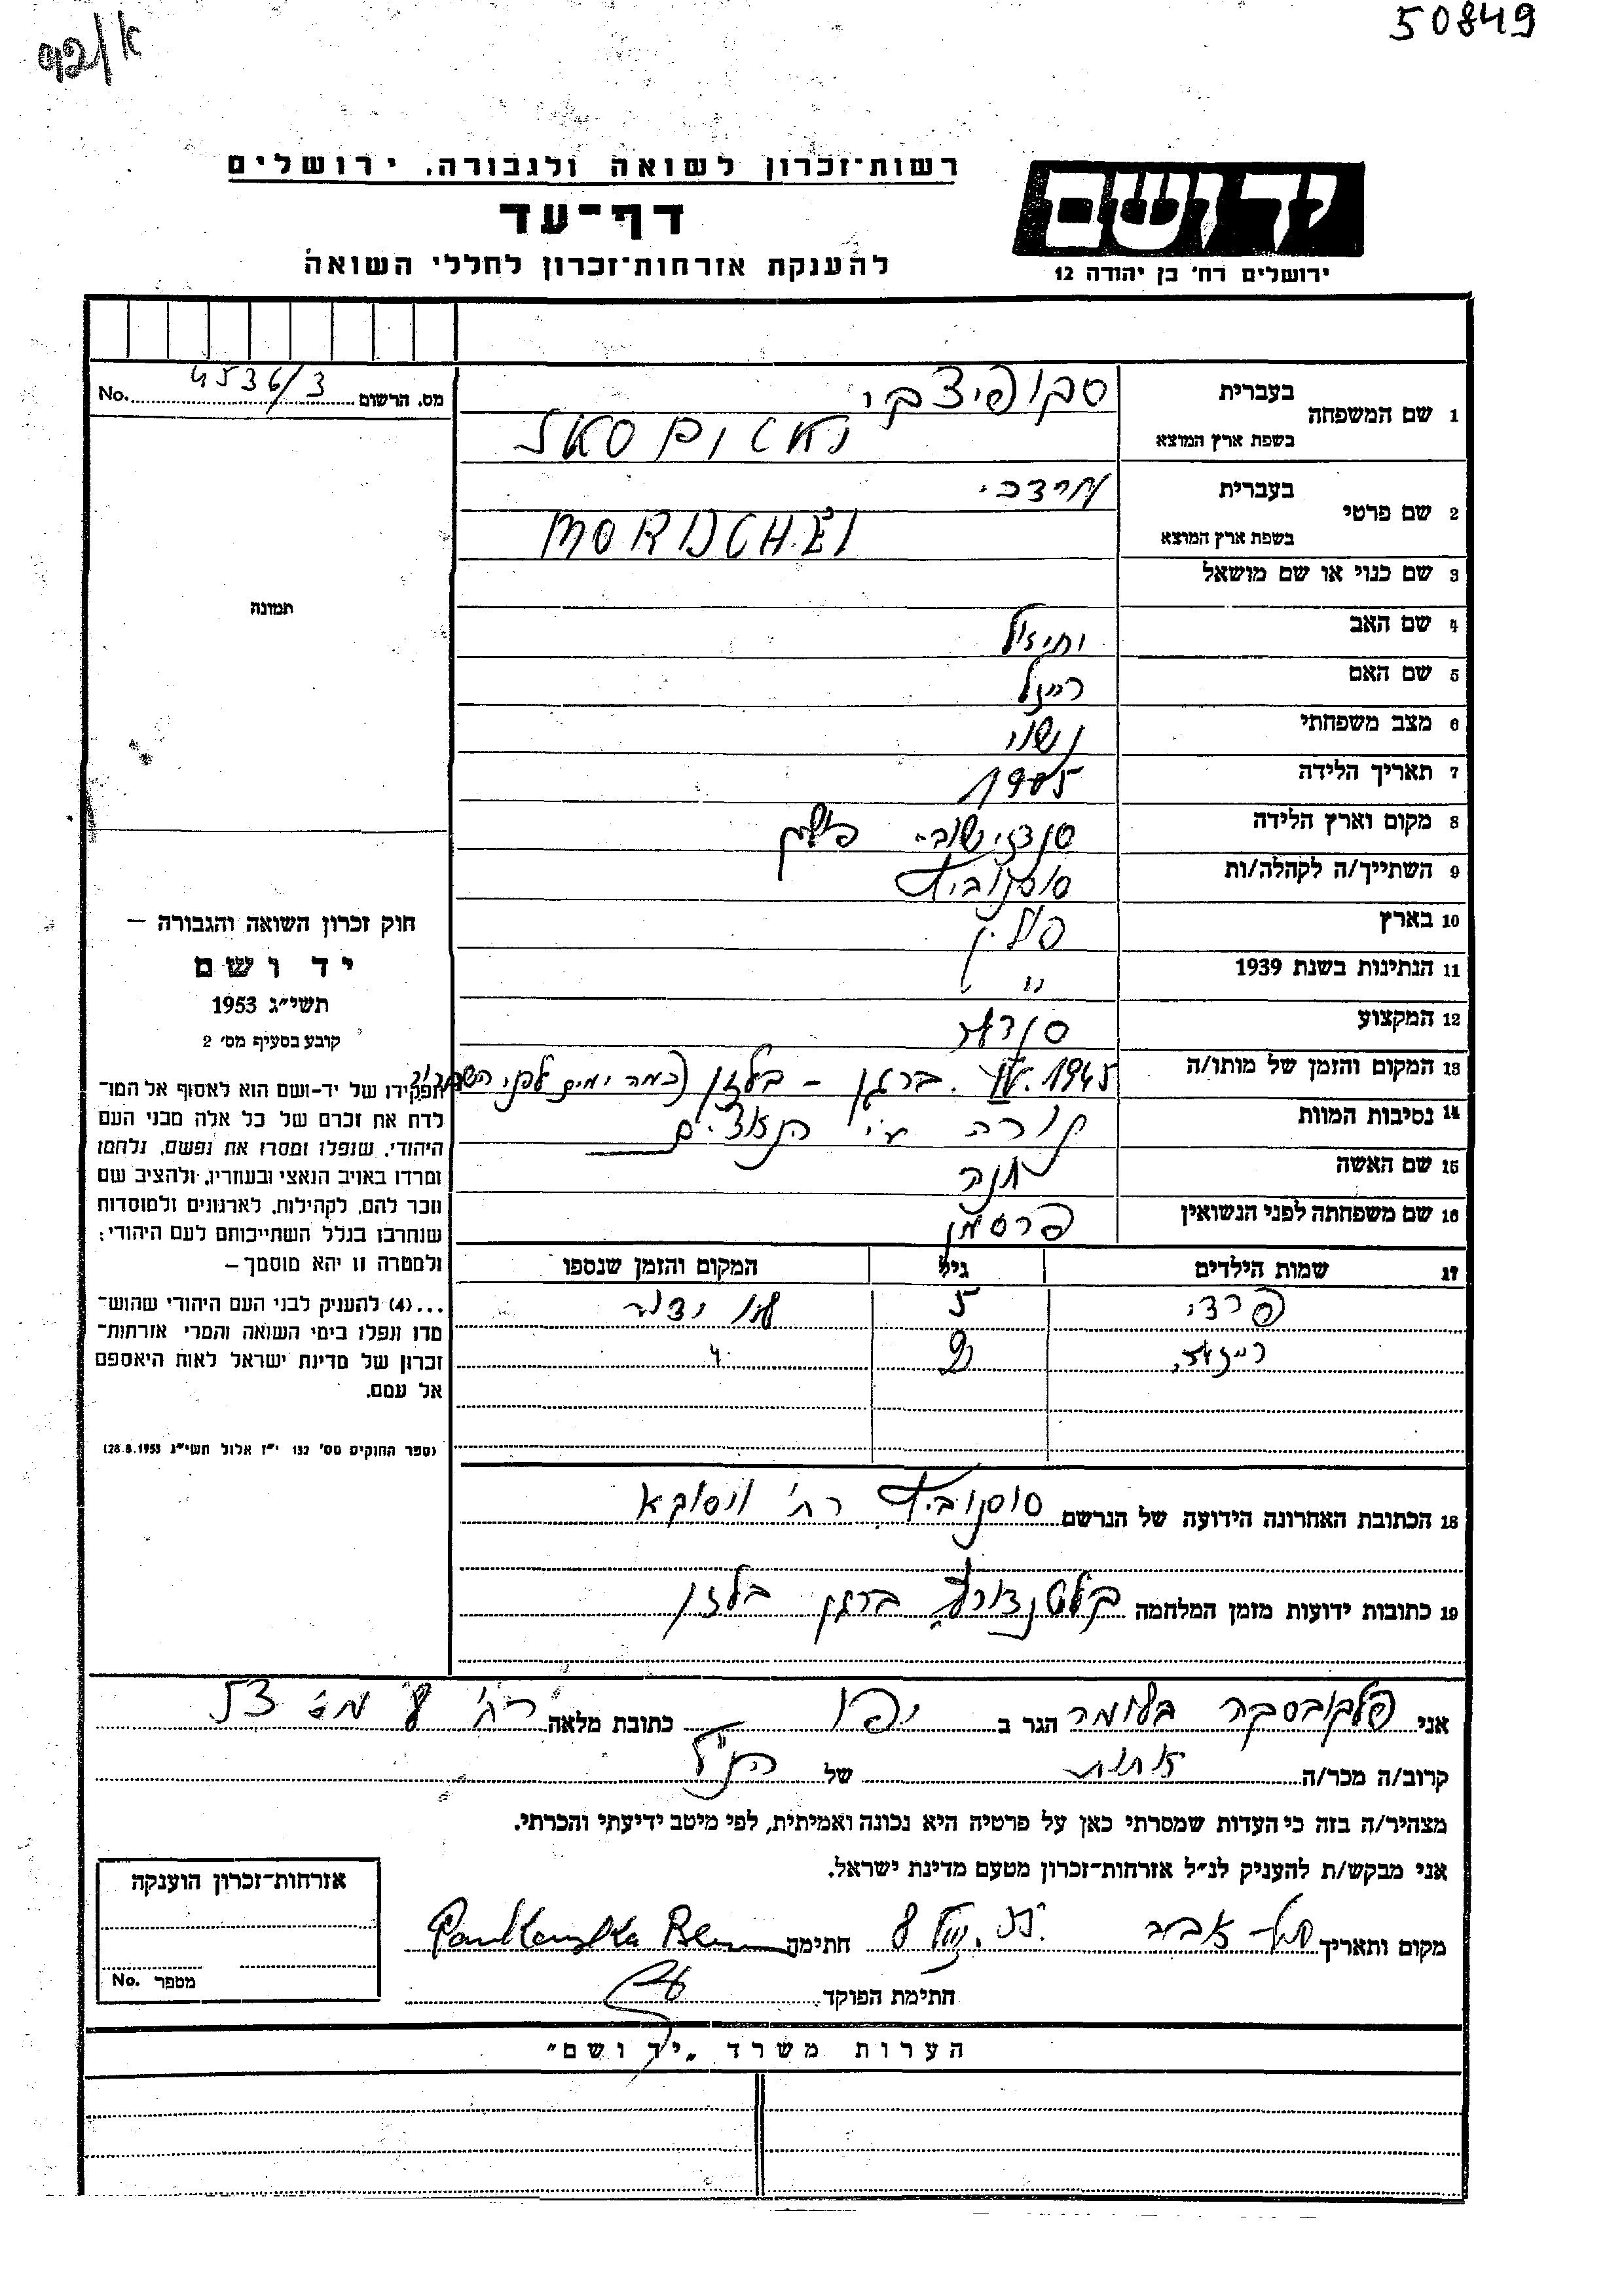 50849
42/א
רשות־זכרון לשואה ולגבורה, ירושלים
דף־עד
להענקת אזרחות־זכרון לחללי השואה
יד ושם
ירושלים רח' בן יהודה 12
מס. הרשום 4536/3 No.
1 שם המשפחה
בעברית
בשפת ארץ המוצא
2 שם פרטי
בעברית מרדכי
בשפת ארץ המוצא MORDCHEI
3 שם כנוי או שם מושאל
4 שם האב
5 שם האם
6 מצב משפחתי נשוי
7 תאריך הלידה 1905
8 מקום וארץ הלידה פולין
9 השתייך/ה לקהלה/ות סוסנוביץ
10 בארץ פולין
11 הנתינות בשנת 1939
12 המקצוע סנדלר
13 המקום והזמן של מותו/ה 1945. IV. ברגן - בלזן (כמה ימים לפני השחרור
14 נסיבות המוות נורה ע"י הנאצים
15 שם האשה חנה
16 שם משפחתה לפני הנשואין פרסמן
17 שמות הילדים גיל המקום והזמן שנספו
פרדי 5 לא ידוע
18 הכתובת האחרונה הידועה של הנרשם סוסנוביץ רח' ויסוקא
19 כתובות ידועות מזמן המלחמה ברגן בלזן
תמונה
חוק זכרון השואה והגבורה –
יד ושם
תשי״ג 1953
קובע בסעיף מס׳ 2
תפקידו של יד-ושם הוא לאסוף אל המו־
לדת את זכרם של כל אלה מבני העם
היהודי, שנפלו ומסרו את נפשם, נלחמו
ומרדו באויב הנאצי ובעוזריו, ולהציב שם
וזכר להם, לקהילות, לארגונים ולמוסדות
שנחרבו בגלל השתייכותם לעם היהודי;
ולמטרה זו יהא מוסמך –
...(4) להעניק לבני העם היהודי שהוש־
מדו ונפלו בימי השואה והמרי אזרחות־
זכרון של מדינת ישראל לאות היאספם
אל עמם.
(ספר החוקים מס׳ 132 י״ז אלול תשי״ג 28.8.1953)
אני בלומה הגר ב יפו כתובת מלאה רח'
קרוב/ה מכר/ה אחות של הנ"ל
מצהיר/ה בזה כי העדות שמסרתי כאן על פרטיה היא נכונה ואמיתית, לפי מיטב ידיעתי והכרתי.
אני מבקש/ת להעניק לנ״ל אזרחות-זכרון מטעם מדינת ישראל.
מקום ותאריך תל-אביב חתימה
חתימת הפוקד
אזרחות-זכרון הוענקה
מספר No.
הערות משרד „יד ושם״